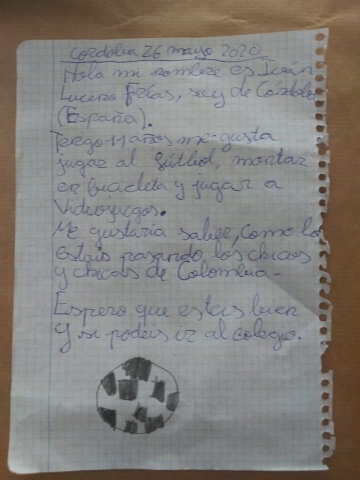 Córdoba 26 mayo 2020
Hola mi nombre es Iván
Lucena Frías, soy de Córdoba
(España).
Tengo 11 años me gusta
jugar al fútbol, montar
en bicicleta y jugar a
Videojuegos.
Me gustaría saber, como lo
estáis pasando, los chicos
y chicas de Colombia-
Espero que esteis bien
y si podeis ir al colegio.